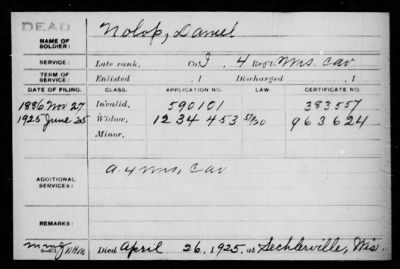 DEAD
NAME OF SOLDIER: Nolop, Daniel
SERVICE: Late rank, Co. I, 4 Reg't Wis. Cav.
TERM OF SERVICE: Enlisted , 1 Discharged , 1
DATE OF FILING. CLASS. APPLICATION NO. LAW. CERTIFICATE NO.
1886 Nov 27 Invalid, 590101 383557
1925 June 25 Widow, 1234453 5/1/20 963624
Minor,
ADDITIONAL SERVICES: A. 4 Wis, Cav
REMARKS:
Died April 26, 1925, at Sechlerville, Wis.